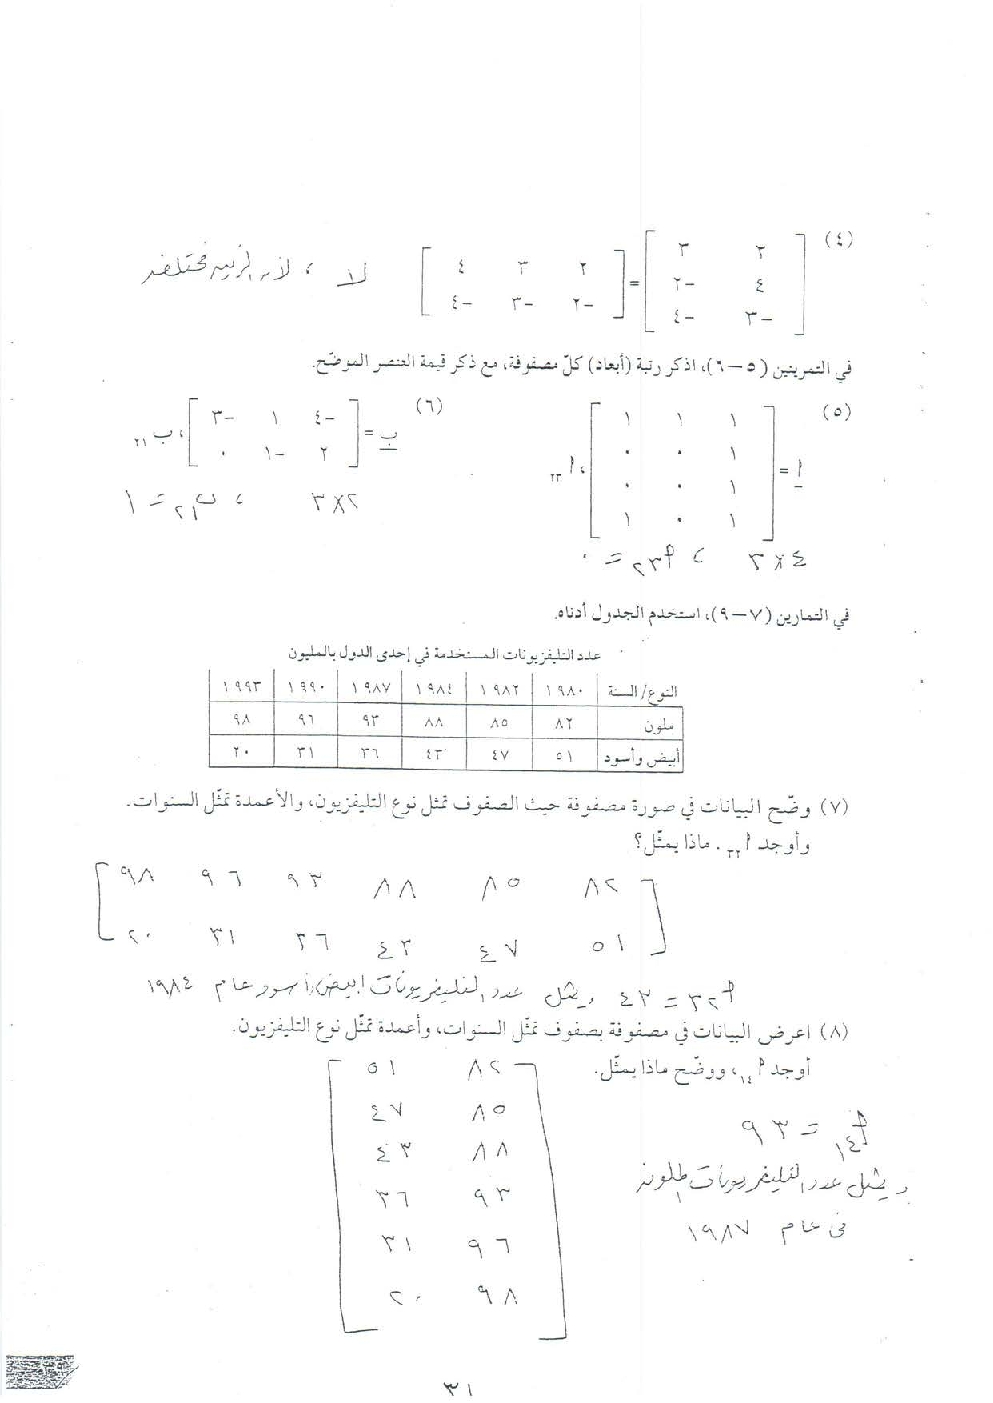 (٤) [ ٢ ٣ ] = [ ٢ ٣ ٤ ] لا ، لأن الرتبه مختلفه
[ ٤ -٢ ] [ -٢ -٣ -٤ ]
[ -٣ -٤ ]
في التمرينين (٥ – ٦)، اذكر رتبة (أبعاد) كلّ مصفوفة، مع ذكر قيمة العنصر الموضّح.
(٥) أ = [ ١ ١ ١ ] ، أ ٢٣
[ ١ ٠ ٠ ]
[ ١ ٠ ٠ ]
[ ١ ٠ ١ ]
٤ × ٣ ، أ ٢٣ = ٠
(٦) ب = [ -٤ ١ -٣ ] ، ب ٢١
[ ٢ -١ ٠ ]
٢×٣ ، ب ٢١ = ١
في التمارين (٧ – ٩)، استخدم الجدول أدناه.
عدد التليفزيونات المستخدمة في إحدى الدول بالمليون
النوع/السنة ١٩٨٠ ١٩٨٢ ١٩٨٤ ١٩٨٧ ١٩٩٠ ١٩٩٣
ملون ٨٢ ٨٥ ٨٨ ٩٣ ٩٦ ٩٨
أبيض وأسود ٥١ ٤٧ ٤٣ ٣٦ ٣١ ٢٠
(٧) وضّح البيانات في صورة مصفوفة حيث الصفوف تمثل نوع التليفزيون، والأعمدة تمثّل السنوات.
وأوجد أ ٢٣ . ماذا يمثّل؟
[ ٨٢ ٨٥ ٨٨ ٩٣ ٩٦ ٩٨ ]
[ ٥١ ٤٧ ٤٣ ٣٦ ٣١ ٢٠ ]
أ ٢٣ = ٤٣ ويمثل عدد التليفزيونات ابيض وأسود عام ١٩٨٤
(٨) اعرض البيانات في مصفوفة بصفوف تمثّل السنوات، وأعمدة تمثّل نوع التليفزيون.
أوجد أ ١٤، ووضّح ماذا يمثّل.
[ ٨٢ ٥١ ]
[ ٨٥ ٤٧ ]
[ ٨٨ ٤٣ ]
[ ٩٣ ٣٦ ]
[ ٩٦ ٣١ ]
[ ٩٨ ٢٠ ]
أ ١٤ = ٩٣
ويمثل عدد التليفزيونات الملونه
فى عام ١٩٨٧
٣١